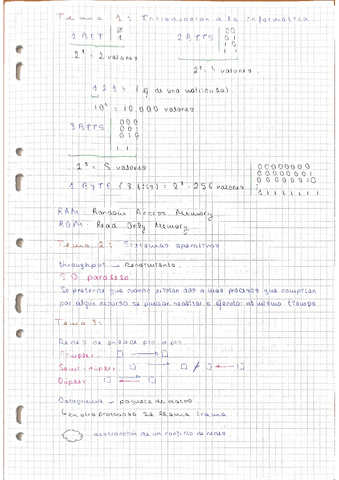 Tema 1: Introducción a la informática
1 BIT | 0
1
2 BITS | 00
01
10
11
2¹ = 2 valores
2² = 4 valores
1234 (ej de una matrícula)
10⁴ = 10.000 valores
3 BITS | 000
001
010
111
2³ = 8 valores
00000000
00000001
00000010
11111111
1 Byte (8 bits) = 2⁸ = 256 valores
RAM: Random Access Memory
ROM: Read Only Memory
Tema 2: Sistemas operativos
throughput → Rendimiento
S.O. paralelo
Se pretende que cuando existan dos o más procesos que compitan
por algún recurso se puedan realizar o ejecutar al mismo tiempo.
Tema 3:
Redes de
Simplex:
Semi-dúplex:
Dúplex:
Datagrama → paquete de datos
en otro protocolo se llama trama
abstracción de un conjunto de redes